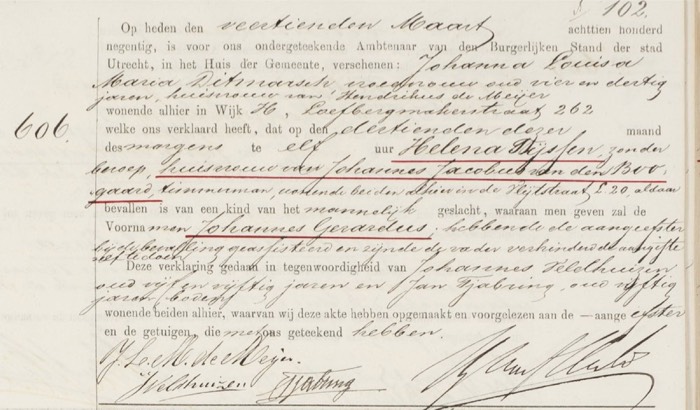 102.
Op heden den veertienden Maart achttien honderd
negentig, is voor ons ondergeteekende Ambtenaar van den Burgerlijken Stand der stad
Utrecht, in het Huis der Gemeente, verschenen: Johanna Louisa
Maria Ditmarsch, vroedvrouw oud vier en dertig
jaren, huisvrouw van Hendrikus de Meijer
wonende alhier in Wijk H, Loefbergmakerstraat 262
606. welke ons verklaard heeft, dat op den dertienden dezer maand
des morgens te elf uur Helena Thijssen, zonder
beroep, huisvrouw van Johannes Jacobus van den Boo-
gaard, timmerman, wonende beiden alhier in de L 20, aldaar
bevallen is van een kind van het mannelijk geslacht, waaraan men geven zal de
Voornamen Johannes Gerardus, hebbende de aangeefster
bij de bevalling geassisteerd en zijnde de vader verhinderd de aangifte
zelf te doen
Deze verklaring gedaan in tegenwoordigheid van Johannes Veldhuizen
oud vijf en vijftig jaren en Jan Tjabring, oud vijftig
jaren, boden
wonende beiden alhier, waarvan wij deze akte hebben opgemaakt en voorgelezen aan de —aangeefster
en de getuigen, die met ons geteekend hebben.
J. L. M. de Meijer
JVeldhuizen Tjabring